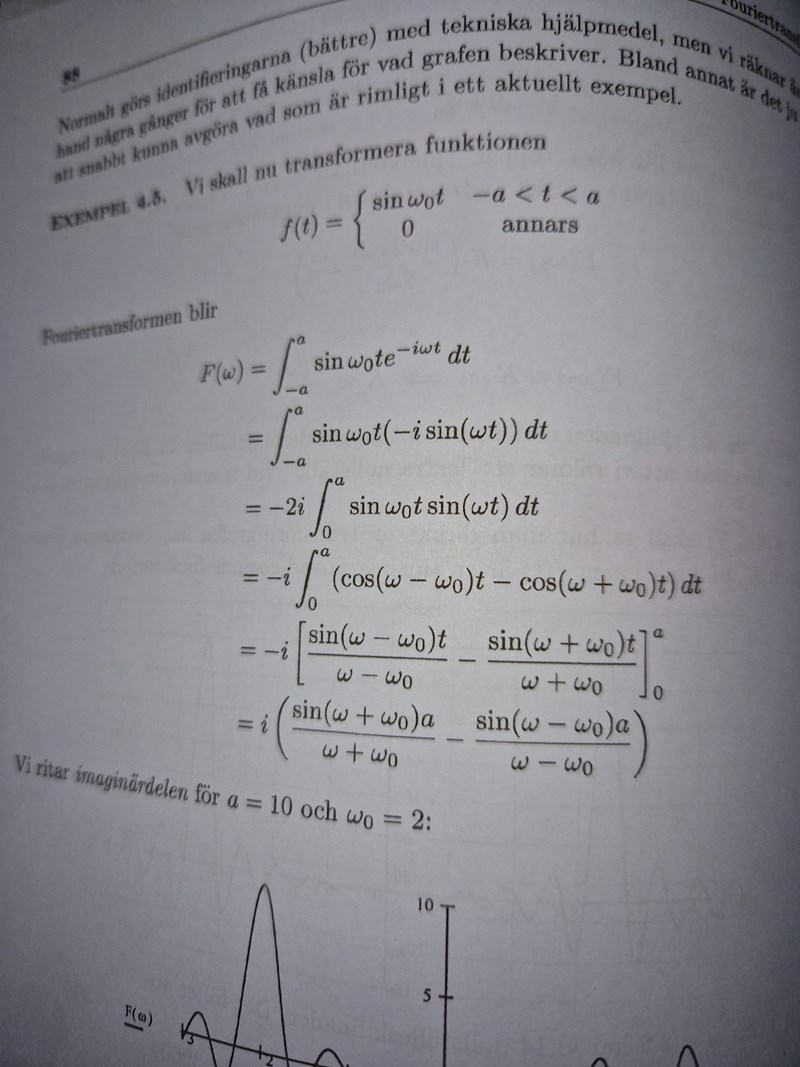 88
Normalt görs identifieringarna (bättre) med tekniska hjälpmedel, men vi räknar
hand några gånger för att få känsla för vad grafen beskriver. Bland annat är det ju
att snabbt kunna avgöra vad som är rimligt i ett aktuellt exempel.
EXEMPEL 4.5. Vi skall nu transformera funktionen
f(t) = { sin ω₀t   −a < t < a
0   annars
Fouriertransformen blir
F(ω) = ∫₋ₐᵃ sin ω₀te^{−iωt} dt
= ∫₋ₐᵃ sin ω₀t(−i sin(ωt)) dt
= −2i ∫₀ᵃ sin ω₀t sin(ωt) dt
= −i ∫₀ᵃ (cos(ω − ω₀)t − cos(ω + ω₀)t) dt
= −i [ sin(ω − ω₀)t / (ω − ω₀) − sin(ω + ω₀)t / (ω + ω₀) ]₀ᵃ
= i ( sin(ω + ω₀)a / (ω + ω₀) − sin(ω − ω₀)a / (ω − ω₀) )
Vi ritar imaginärdelen för a = 10 och ω₀ = 2:
10
5
F(ω)
3
2